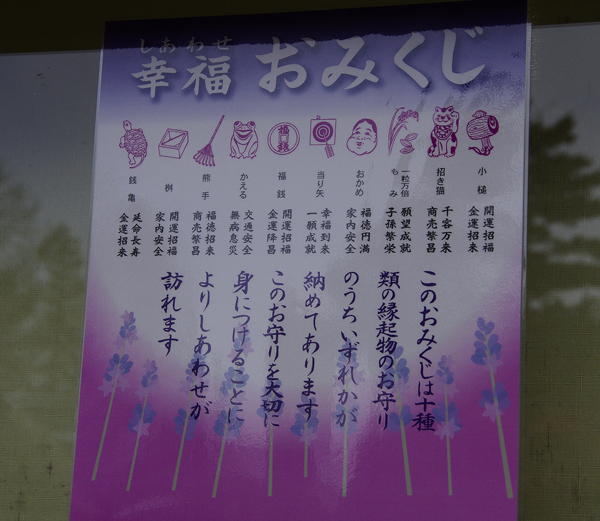 しあわせ
幸福 おみくじ
小槌
開運招福
金運招来
招き猫
千客万来
商売繁昌
一粒万倍
もみ
願望成就
子孫繁栄
おかめ
福徳円満
家内安全
当り矢
幸福到来
一願成就
福銭
開運招福
金運降昌
かえる
交通安全
無病息災
熊手
福徳招来
商売繁昌
桝
開運招福
家内安全
銭亀
延命長寿
金運招来
このおみくじは十種
類の縁起物のお守り
のうちいずれかが
納めてあります
このお守りを大切に
身につけることに
よりしあわせが
訪れます